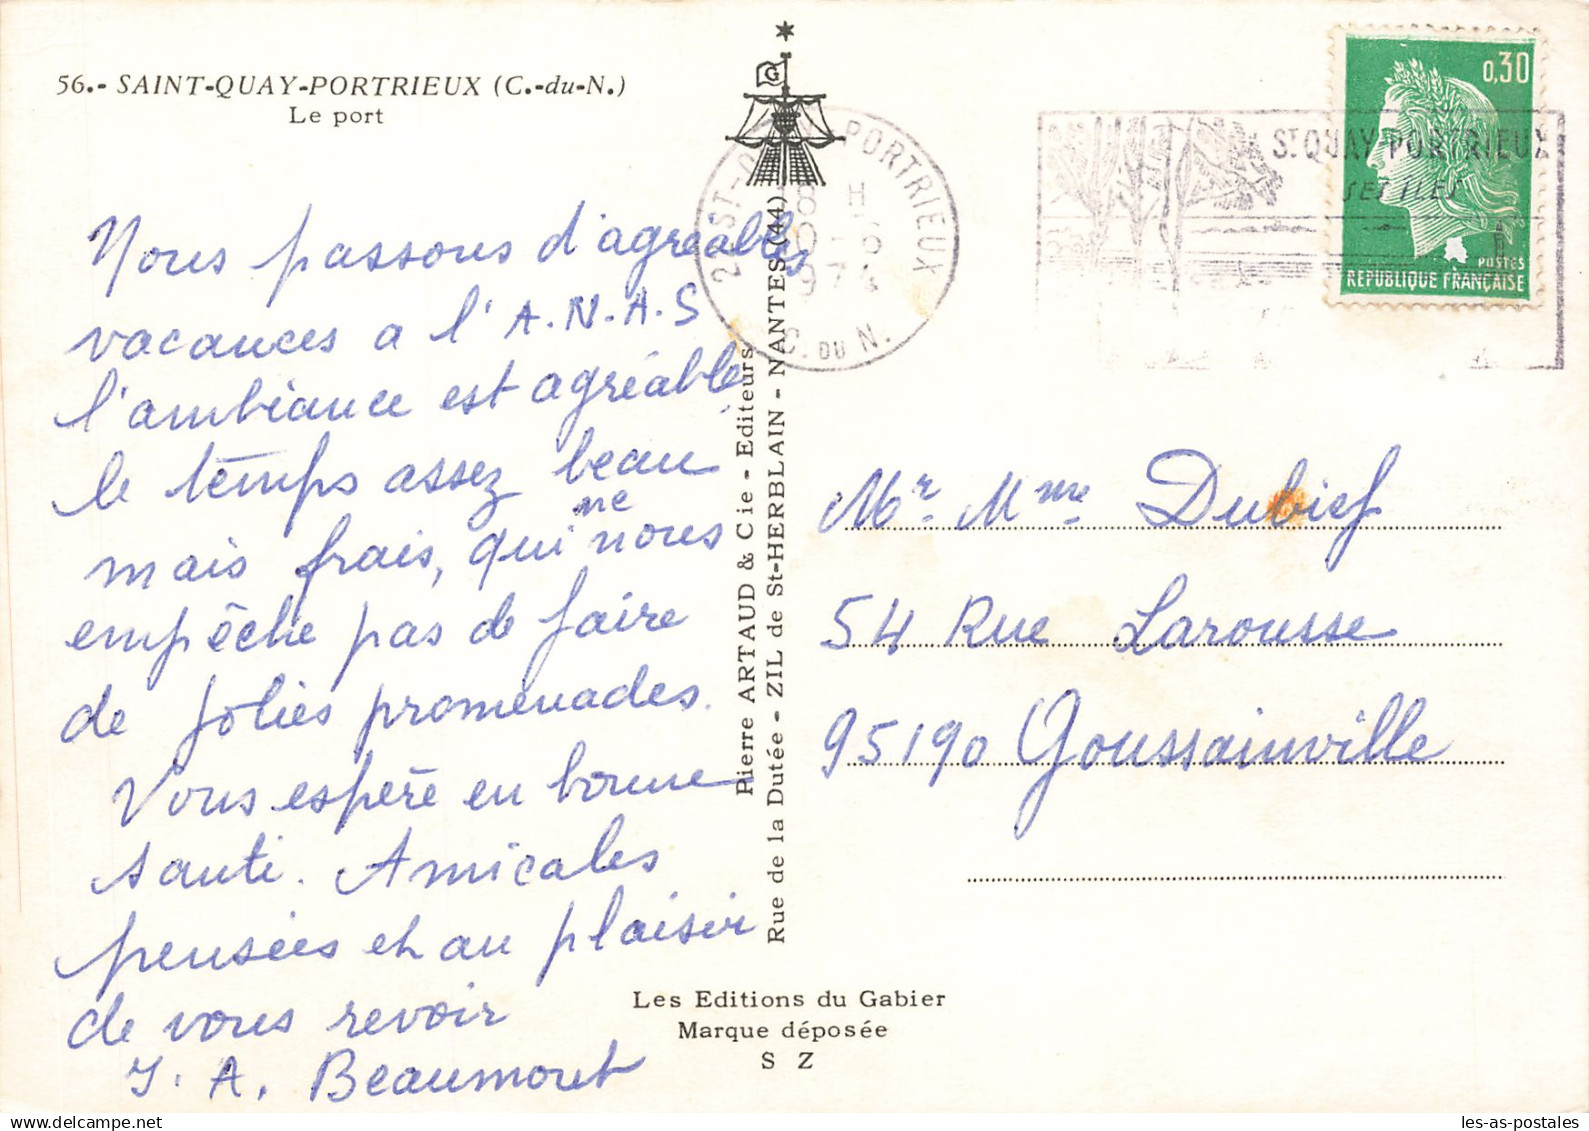 56.- SAINT-QUAY-PORTRIEUX (C.-du-N.)
Le port
Nous passons d'agréables
vacances a l'A.N.A.S
l'ambiance est agréable,
le temps assez beau
mais frais, qui ne nous
empêche pas de faire
de jolies promenades.
Vous espère en bonne
santé. Amicales
pensées et au plaisir
de vous revoir
J. A. Beaumoret
G
Pierre ARTAUD & Cie - Editeurs
Rue de la Dutée - ZIL de St-HERBLAIN - NANTES (44)
Les Editions du Gabier
Marque déposée
S Z
22 ST-QUAY PORTRIEUX
18 H
1974
C. DU N.
ST QUAY PORTRIEUX
SES ILES
0,30
POSTES
REPUBLIQUE FRANÇAISE
Mr Mme Dubief
54 Rue Larousse
95190 Goussainville
les-as-postales